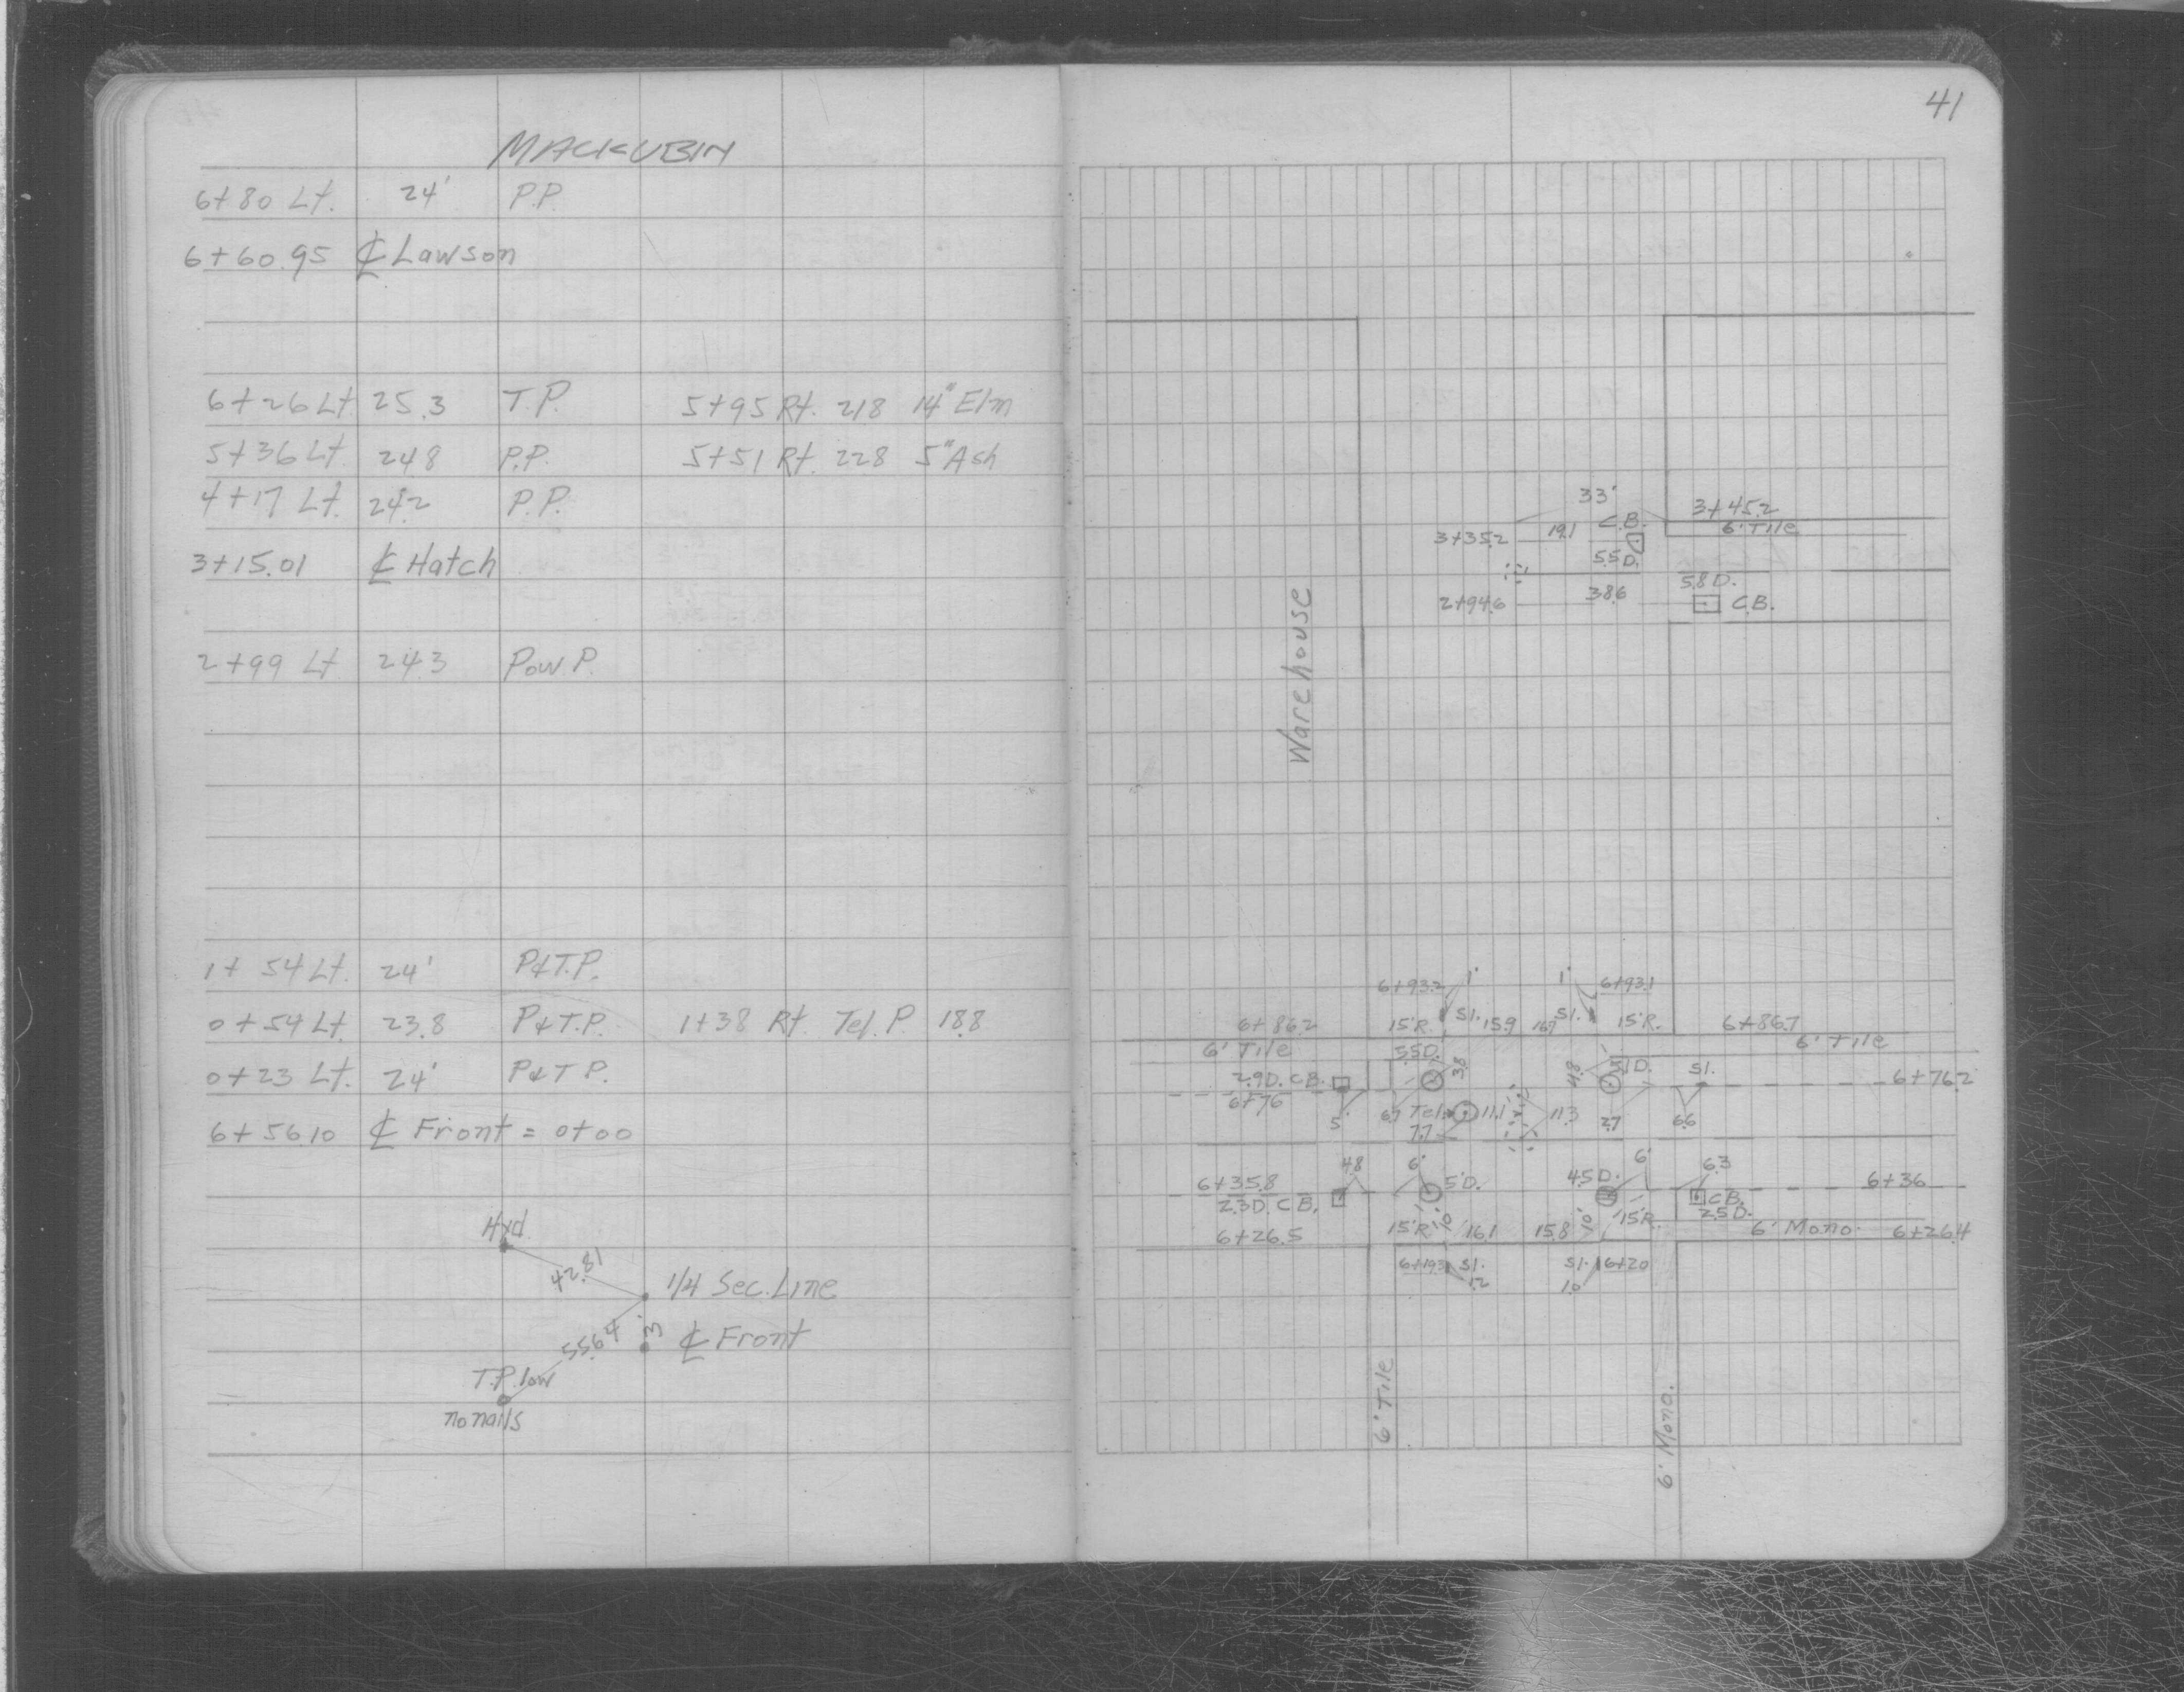 41
MACKUBIN
6+80 Lt. 24' P.P.
6+60.95 ℄ Lawson
6+26 Lt. 25.3 T.P. 5+95 Rt. 218 14" Elm
5+36 Lt. 248 P.P. 5+51 Rt. 228 5" Ash
4+17 Lt. 242 P.P.
3+15.01 ℄ Hatch
2+99 Lt 243 Pow P.
1+54 Lt. 24' P&T.P.
0+54 Lt. 23.8 P&T.P. 1+38 Rt. Tel. P. 188
0+23 Lt. 24' P&T P.
6+56.10 ℄ Front = 0+00
Hyd.
42.81
1/4 Sec. Line
55.64
3'
℄ Front
T.P. low
no nails
33'
3+45.2
C.B.
6' Tile
3+35.2
19.1
5.5 D.
5.8 D.
2+94.6
38.6
C.B.
Warehouse
6+93.2
1'
1'
6+93.1
6+86.2
15'R.
Sl.
15.9
16.7
Sl.
15'R.
6+86.7
6' Tile
6' Tile
3.5D.
3.8
4.8
2.9D. C.B.
Sl.
6+76.2
6+76
5'
6.7
Tel.
11.1
11.3
2.7
6.6
7.7
4.8
6'
6'
6.3
6+35.8
5'D.
4.5D.
6+36
2.3D. C.B.
C.B.
2.5D.
6+26.5
15'R
10'
16.1
15.8
10'
15'R.
6' Mono.
6+26.4
6+19.3
Sl.
Sl.
6+20
1.2
1.0
6' Tile
6' Mono.